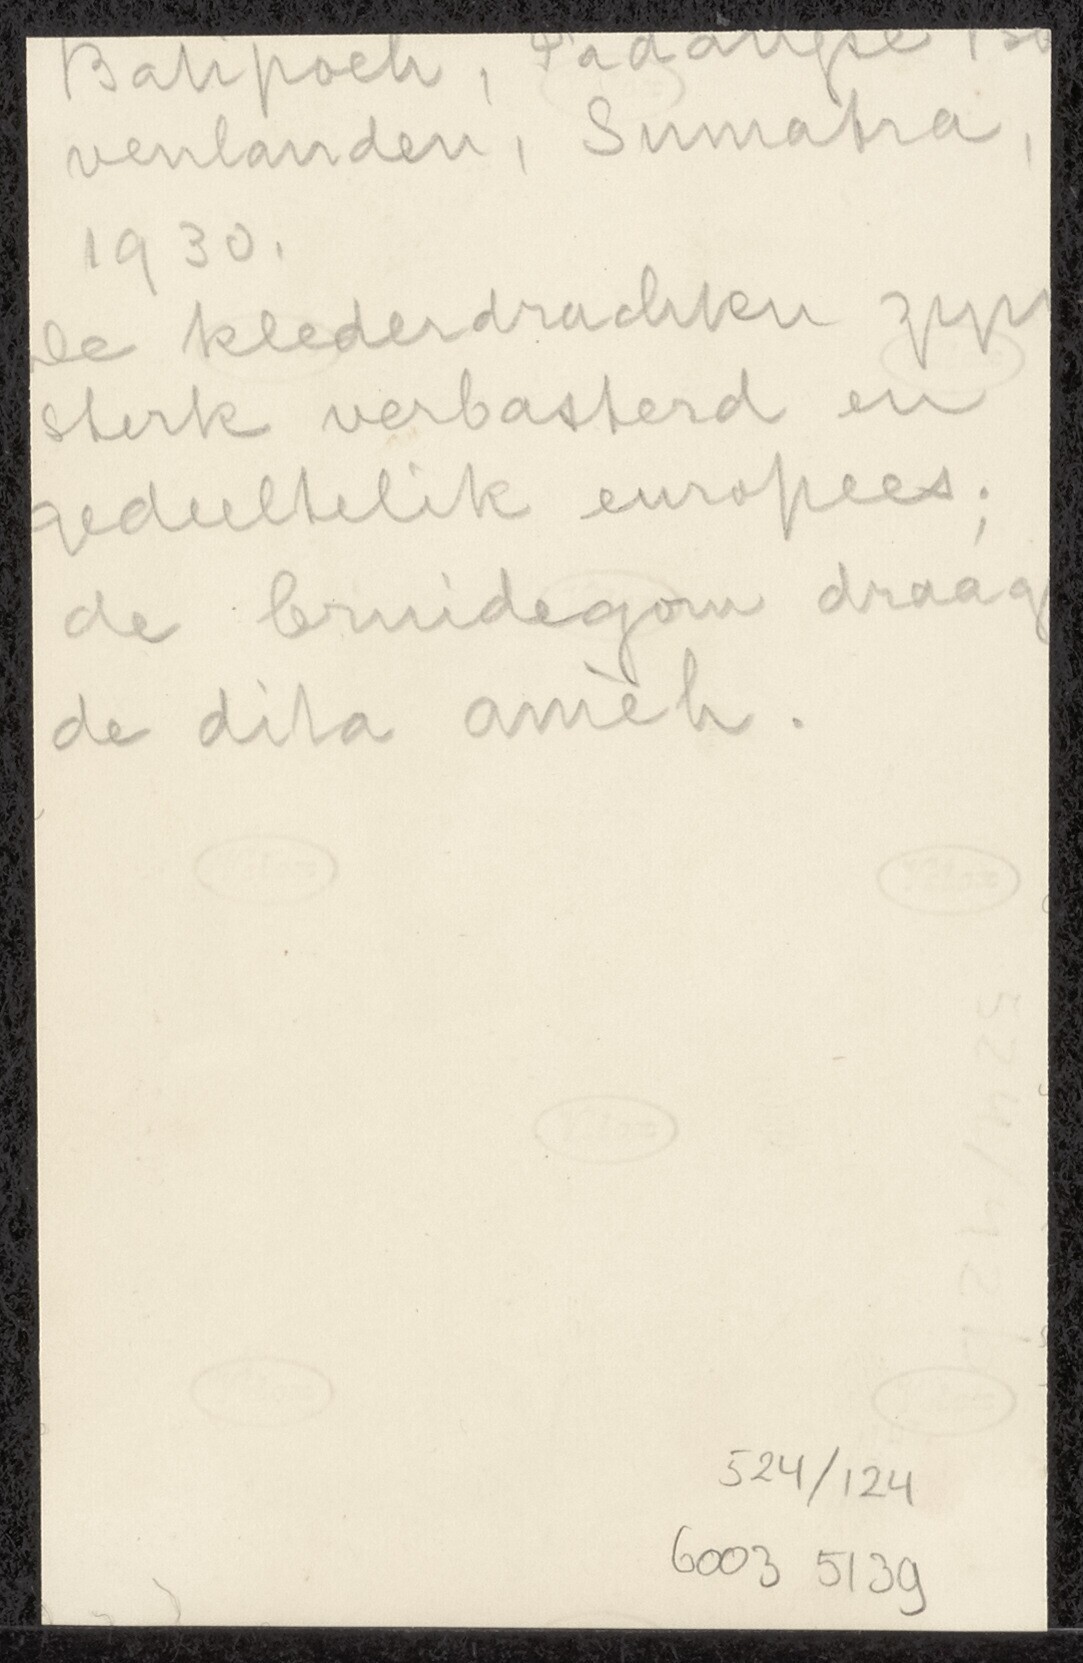 Batipoeh, Padangse Bo
venlanden, Sumatra,
1930.
De klederdrachten zyn
sterk verbasterd en
gedeeltelik europees;
de bruidegom draag
de dita amèh.
Velox
Velox
Velox
Velox
524/124
6003 5139